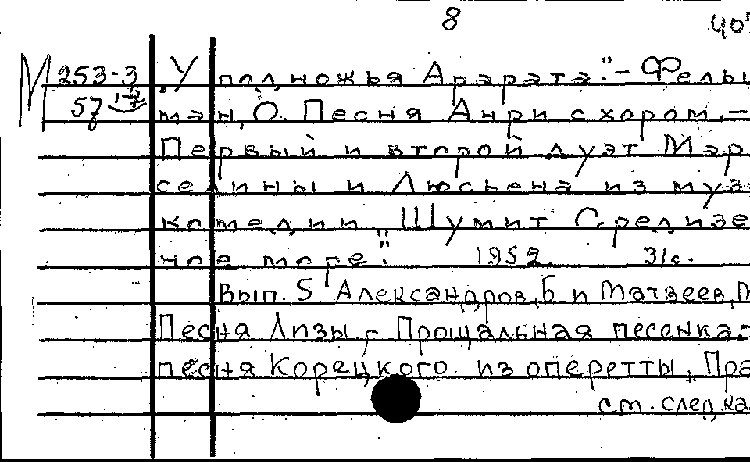 8 40
М 253-3 „У подножья Арарата".- Фельц
57 ман, О. Песня Анри с хором.-
Первый и второй дуэт Мар
селины и Люсьена из муз
комедии „Шумит Средизе
ное море". 1959. 31с.
Вып. 5 Александров, Б и Матвеев, М
Песня Лизы.- Прощальная песенка.-
песня Корецкого из оперетты „Пра
см. след. ка